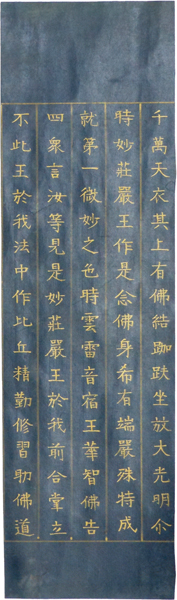 千萬天衣其上有佛結跏趺坐放大光明尒
時妙莊嚴王作是念佛身希有端嚴殊特成
就第一微妙之色時雲雷音宿王華智佛告
四衆言汝等見是妙莊嚴王於我前合掌立
不此王於我法中作比丘精勤修習助佛道